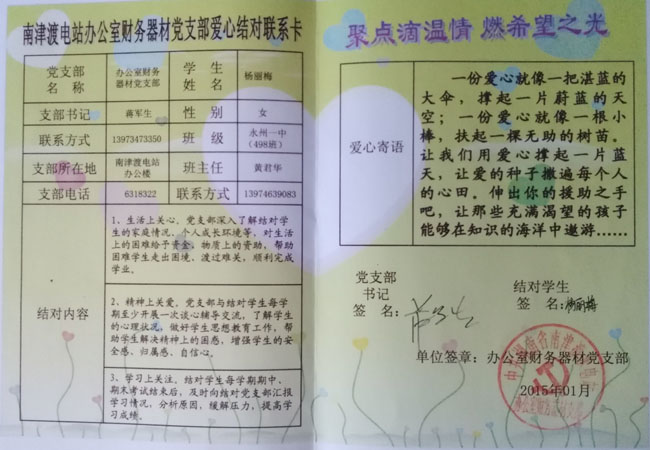 南津渡电站办公室财务器材党支部爱心结对联系卡
党支部名称 办公室财务器材党支部 学生姓名 杨丽梅
支部书记 蒋军生 性别 女
联系方式 13973473350 班级 永州一中(498班)
支部所在地 南津渡电站办公楼 班主任 黄君华
支部电话 6318322 联系方式 13974639083
结对内容
1、生活上关心。党支部深入了解结对学
生的家庭情况、个人成长环境等，对生活
上的困难给予资金、物质上的资助，帮助
困难学生走出困境、渡过难关，顺利完成
学业。
2、精神上关爱。党支部与结对学生每学
期至少开展一次谈心辅导交流，了解学生
的心理状况，做好学生思想教育工作，帮
助学生解决精神上的困惑，增强学生的安
全感、归属感、自信心。
3、学习上关注。结对学生每学期期中、
期末考试结束后，及时向结对党支部汇报
学习情况，分析原因，缓解压力，提高学
习成绩。
聚点滴温情 燃希望之光
爱心寄语
一份爱心就像一把湛蓝的
大伞，撑起一片蔚蓝的天
空；一份爱心就像一根小
棒，扶起一棵无助的树苗。
让我们用爱心撑起一片蓝
天，让爱的种子撒遍每个人
的心田。伸出你的援助之手
吧，让那些充满渴望的孩子
能够在知识的海洋中遨游……
党支部
书记
签名：
结对学生
签名：杨丽梅
单位签章：办公室财务器材党支部
2015年01月